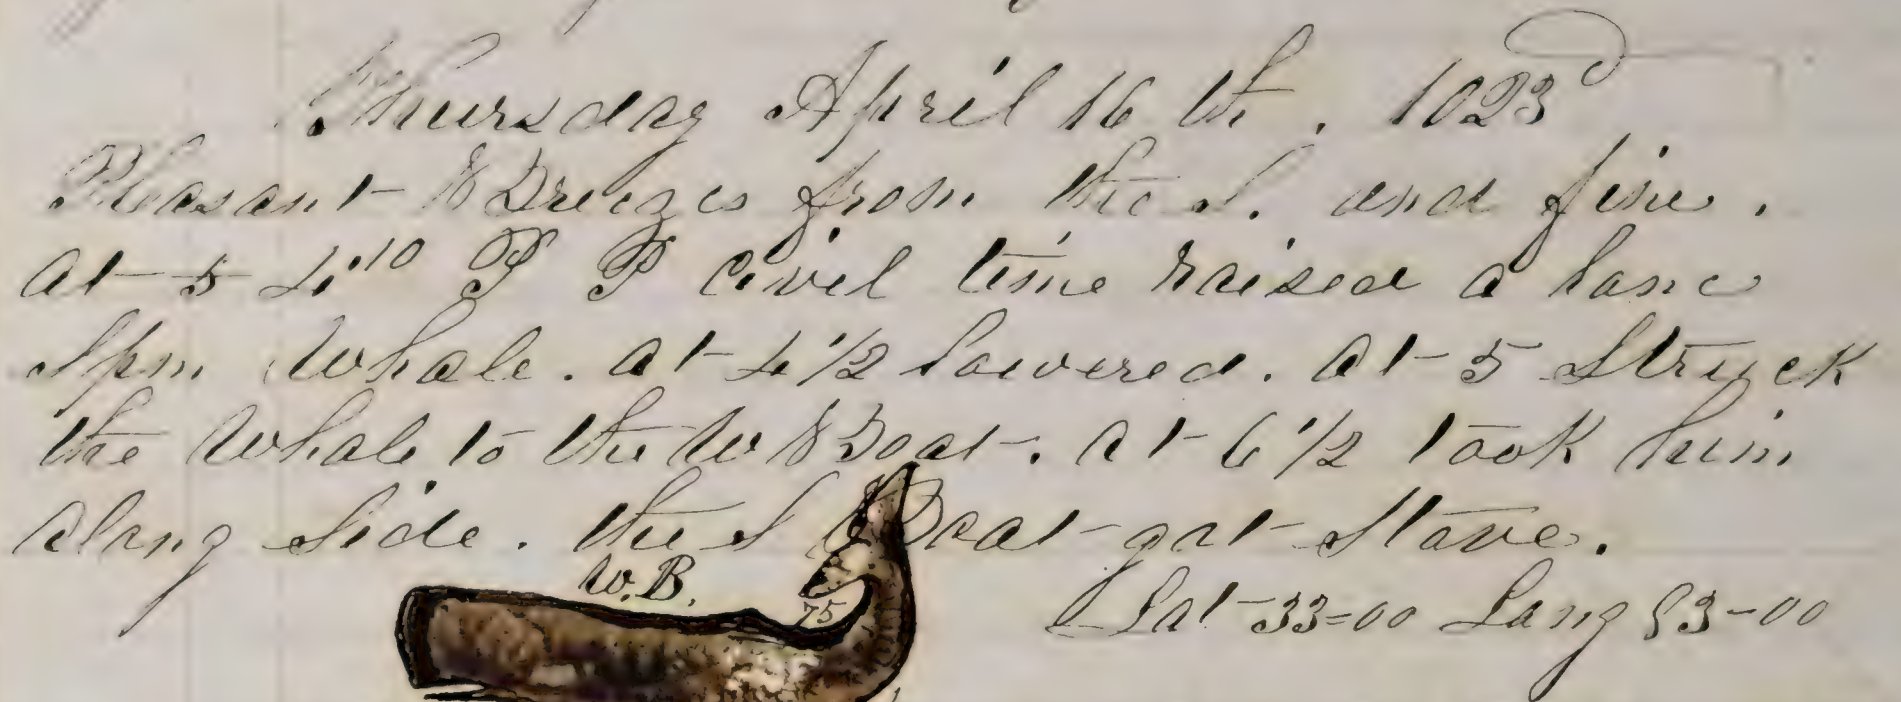 Thursday April 16 th. 1023
Pleasant Breezes from the S. and fine.
at 4 10 P civil time raised a lone
Spm Whale. at 4 1/2 lowered. at 5 Struck
the Whale to the W Boat. at 6 1/2 took him
along Side. the S Boat got Stove.
W.B.
75
Lat 33=00 Long 93-00